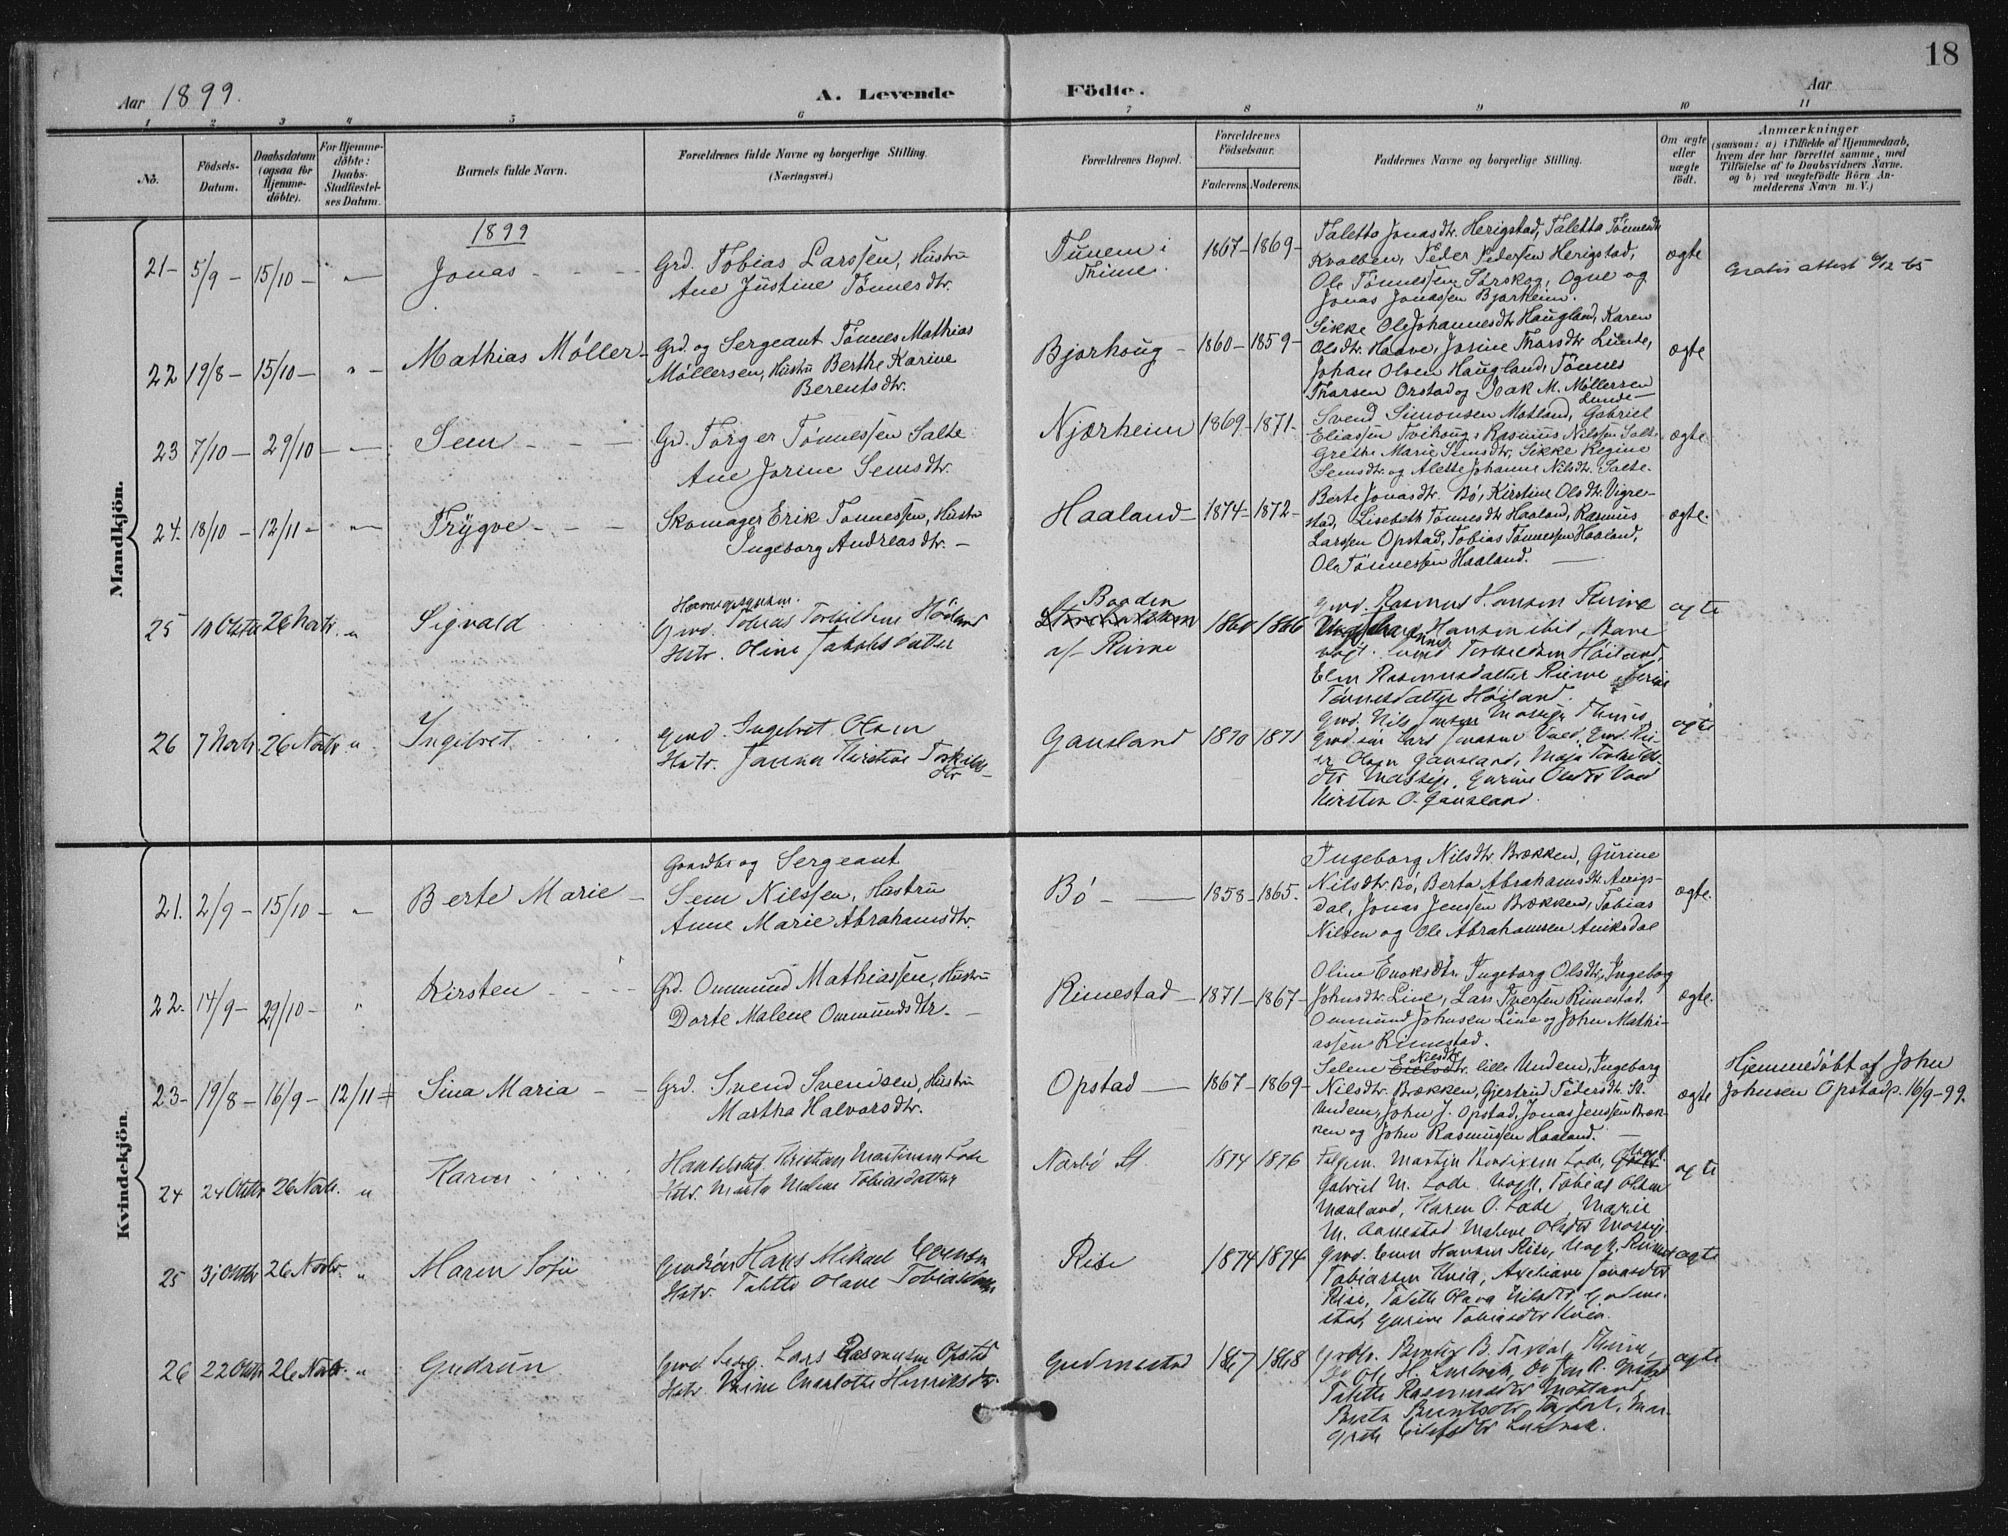 18
Aar 1899.
A. Levende Födte.
Aar
1 2 3 4 5 6 7 8 9 10 11
No.
Födsels-Datum.
Daabsdatum (ogsaa for Hjemme-döbte).
For Hjemme-döbte: Daabs-Stadfæstel-ses Datum.
Barnets fulde Navn.
Forældrenes fulde Navne og borgerlige Stilling.
(Næringsvei.)
Forældrenes Bopæl.
Forældrenes Födselsaar.
Faderens. Moderens.
Faddernes Navne og borgerlige Stilling.
Om ægte eller uægte födt.
Anmærkninger
(saasom: a) i Tilfælde af Hjemmedaab, hvem der har forrettet samme, med Tilföielse af to Daabsvidners Navne. og b) ved uægtefödte Börn An-melderens Navn m. V.)
Mandkjön.
1899
21- 5/9 - 15/10 - " - Jonas - - -
Grd. Tobias Larssen, Hustru
Ane Justine Tønnesdtr.
Tunem i
Thime.
1867- 1869-
Taletta Jonasdtr. Herigstad, Taletta Tønnesdtr
Kvalben, Peder Pedersen Herigstad,
Ole Tønnessen Sørskog, Ogne og
Jonas Jonassen Bjorheim.
ægte
Gratis attest 9/12 65
22 19/8 - 15/10 - " - Mathias Møller -
Grd. og Sergeant Tønnes Mathias
Møllersen, Hustru Berthe Karine
Berentsdtr.
Bjorhoug -
1860- 1859-
Sikke Ole Johannesdtr Haugland, Karen
Olsdtr. Haave, Jorine Thorsdtr Lunde,
Johan Olsen Haugland, Tønnes
Tharsen Orstad og Isak M. Møllersen
Lunde-
ægte
23 7/10 - 29/10 - " - Sem - - -
Grd. Torger Tønnessen Salte
Ane Jorine Semsdtr.
Njærheim
1869- 1871-
Svend Simonsen Motland, Gabriel
Eliassen Tvihoug, Rasmus Nilssen Salte
Grethe Marie Semsdtr, Sikke Regine
Semsdtr. og Alette Johanne Nilsdtr. Salte.
ægte.
24. 18/10 - 12/11 - " - Trygve - - -
Skomager Erik Tønnessen, Hustru
Ingeborg Andreasdtr. -
Haaland -
1874- 1872-
Berte Jonasdtr. Bö, Kirstine Olsdtr. Vigre-
stad, Lisebeth Tønnesdtr Haaland, Rasmus
Larssen Opstad, Tobias Tønnessen Haaland,
Ole Tønnessen Haaland. -
ægte.
25 10 Oktbr 26 Novbr. " Sigvald
Gmd. Tobias Torkildsen Höiland
Hstr. Oline Jakobsdatter
Baaden
af Reime
1860 1866
Gmd. Rasmus Hansen Reime
Hansen ibid,
Torkildsen Höiland,
Elen Rasmusdatter Reime,
Tønnesdatter Höiland.
ægte
26 7 Novbr 26 Novbr " Ingebret
Gmd. Ingebret Olsen
Hstr. Janna Kirstine Torkilds-
dtr
Gausland
1870 1871
Gmd. Nils Jonsen Mossige Thime,
Gmd. søn Lars Jonassen Vold, Gmd. Rei-
er Olsen Gausland, Maja Torkilds-
dtr Mossige, Gurine Olsdtr Vold
Kirsten O. Gausland.
ægte
Kvindekjön.
21. 2/9 - 15/10 - " Berte Marie -
Gaardbr og Sergeant
Sem Nilssen, Hustru
Anne Marie Abrahamsdtr.
Bö -
1858- 1865.
Ingeborg Nilsdtr. Brækken, Gurine
Nilsdtr. Bö, Berta Abrahamsdtr. Aniks-
dal, Jonas Jenssen Brækken, Tobias
Nilsen og Ole Abrahamsen Aniksdal
ægte.
22- 14/9 - 29/10 - " Kirsten - - -
Grd. Ommund Mathiassen, Hustru
Dorte Malene Ommundsdtr. -
Rimestad -
1871- 1867-
Oline Enoksdtr. Ingeborg Olsdtr, Ingeborg
Johnsdtr. Line, Lars Iversen Rimestad,
Ommund Johnsen Line og John Mathi-
assen Rimestad.
ægte.
23- 19/8 - 16/9 - 12/11 - Sina Maria - -
Grd. Svend Svendsen, Hustru
Martha Halvorsdtr.
Opstad -
1867- 1869-
Selene Nilsdtr. lille Undem, Ingeborg
Nilsdtr. Brækken, Gjertrud Pedersdtr. St.
Undem, John J. Opstad, Jonas Jenssen Bræk-
ken og John Rasmussen Haaland.
ægte
Hjemmedöbt af John
Johnsen Opstad p. 16/9-99.
24 24 Oktbr 26 Novbr. " Karen
Handelsbef. Kristian Martinsen Lode
Hstr. Marta Malene Tobiasdatter
Nærbö St.
1874 1876
Martin Bendixsen Lode,
Gabriel M. Lode. Ungk. Tobias Olsen
Motland, Karen O. Lode, Marie
M. Aanestad Malene Olsdtr Mossige.
ægte
25 31 Oktbr 26 Novbr. " Maren Sofie
Gmdsön Hans Mikael Evensen
Hstr. Talette Olave Tobiasdatter
Rise
1874 1874
Gmd. Even Hansen Rise, Ungk. Reinert
Tobiassen Kvia, Axeliane Jonasdtr
Rise, Talette Olava Nilsdtr,
stad, Gurine Tobiasdtr Kvia.
ægte
26 22 Oktbr 26 Novbr. " Gudrun
Gmd. Serg. Lars Rasmussen Opstad
Hstr. Charlotte Henriksdtr.
Gudmestad
1867 1868
Gmdbr. Bendix B. Taxdal, Thime,
Talette Rasmusdtr Motland
Berta Berentsdtr. Taxdal, Mar-
grete
ægte